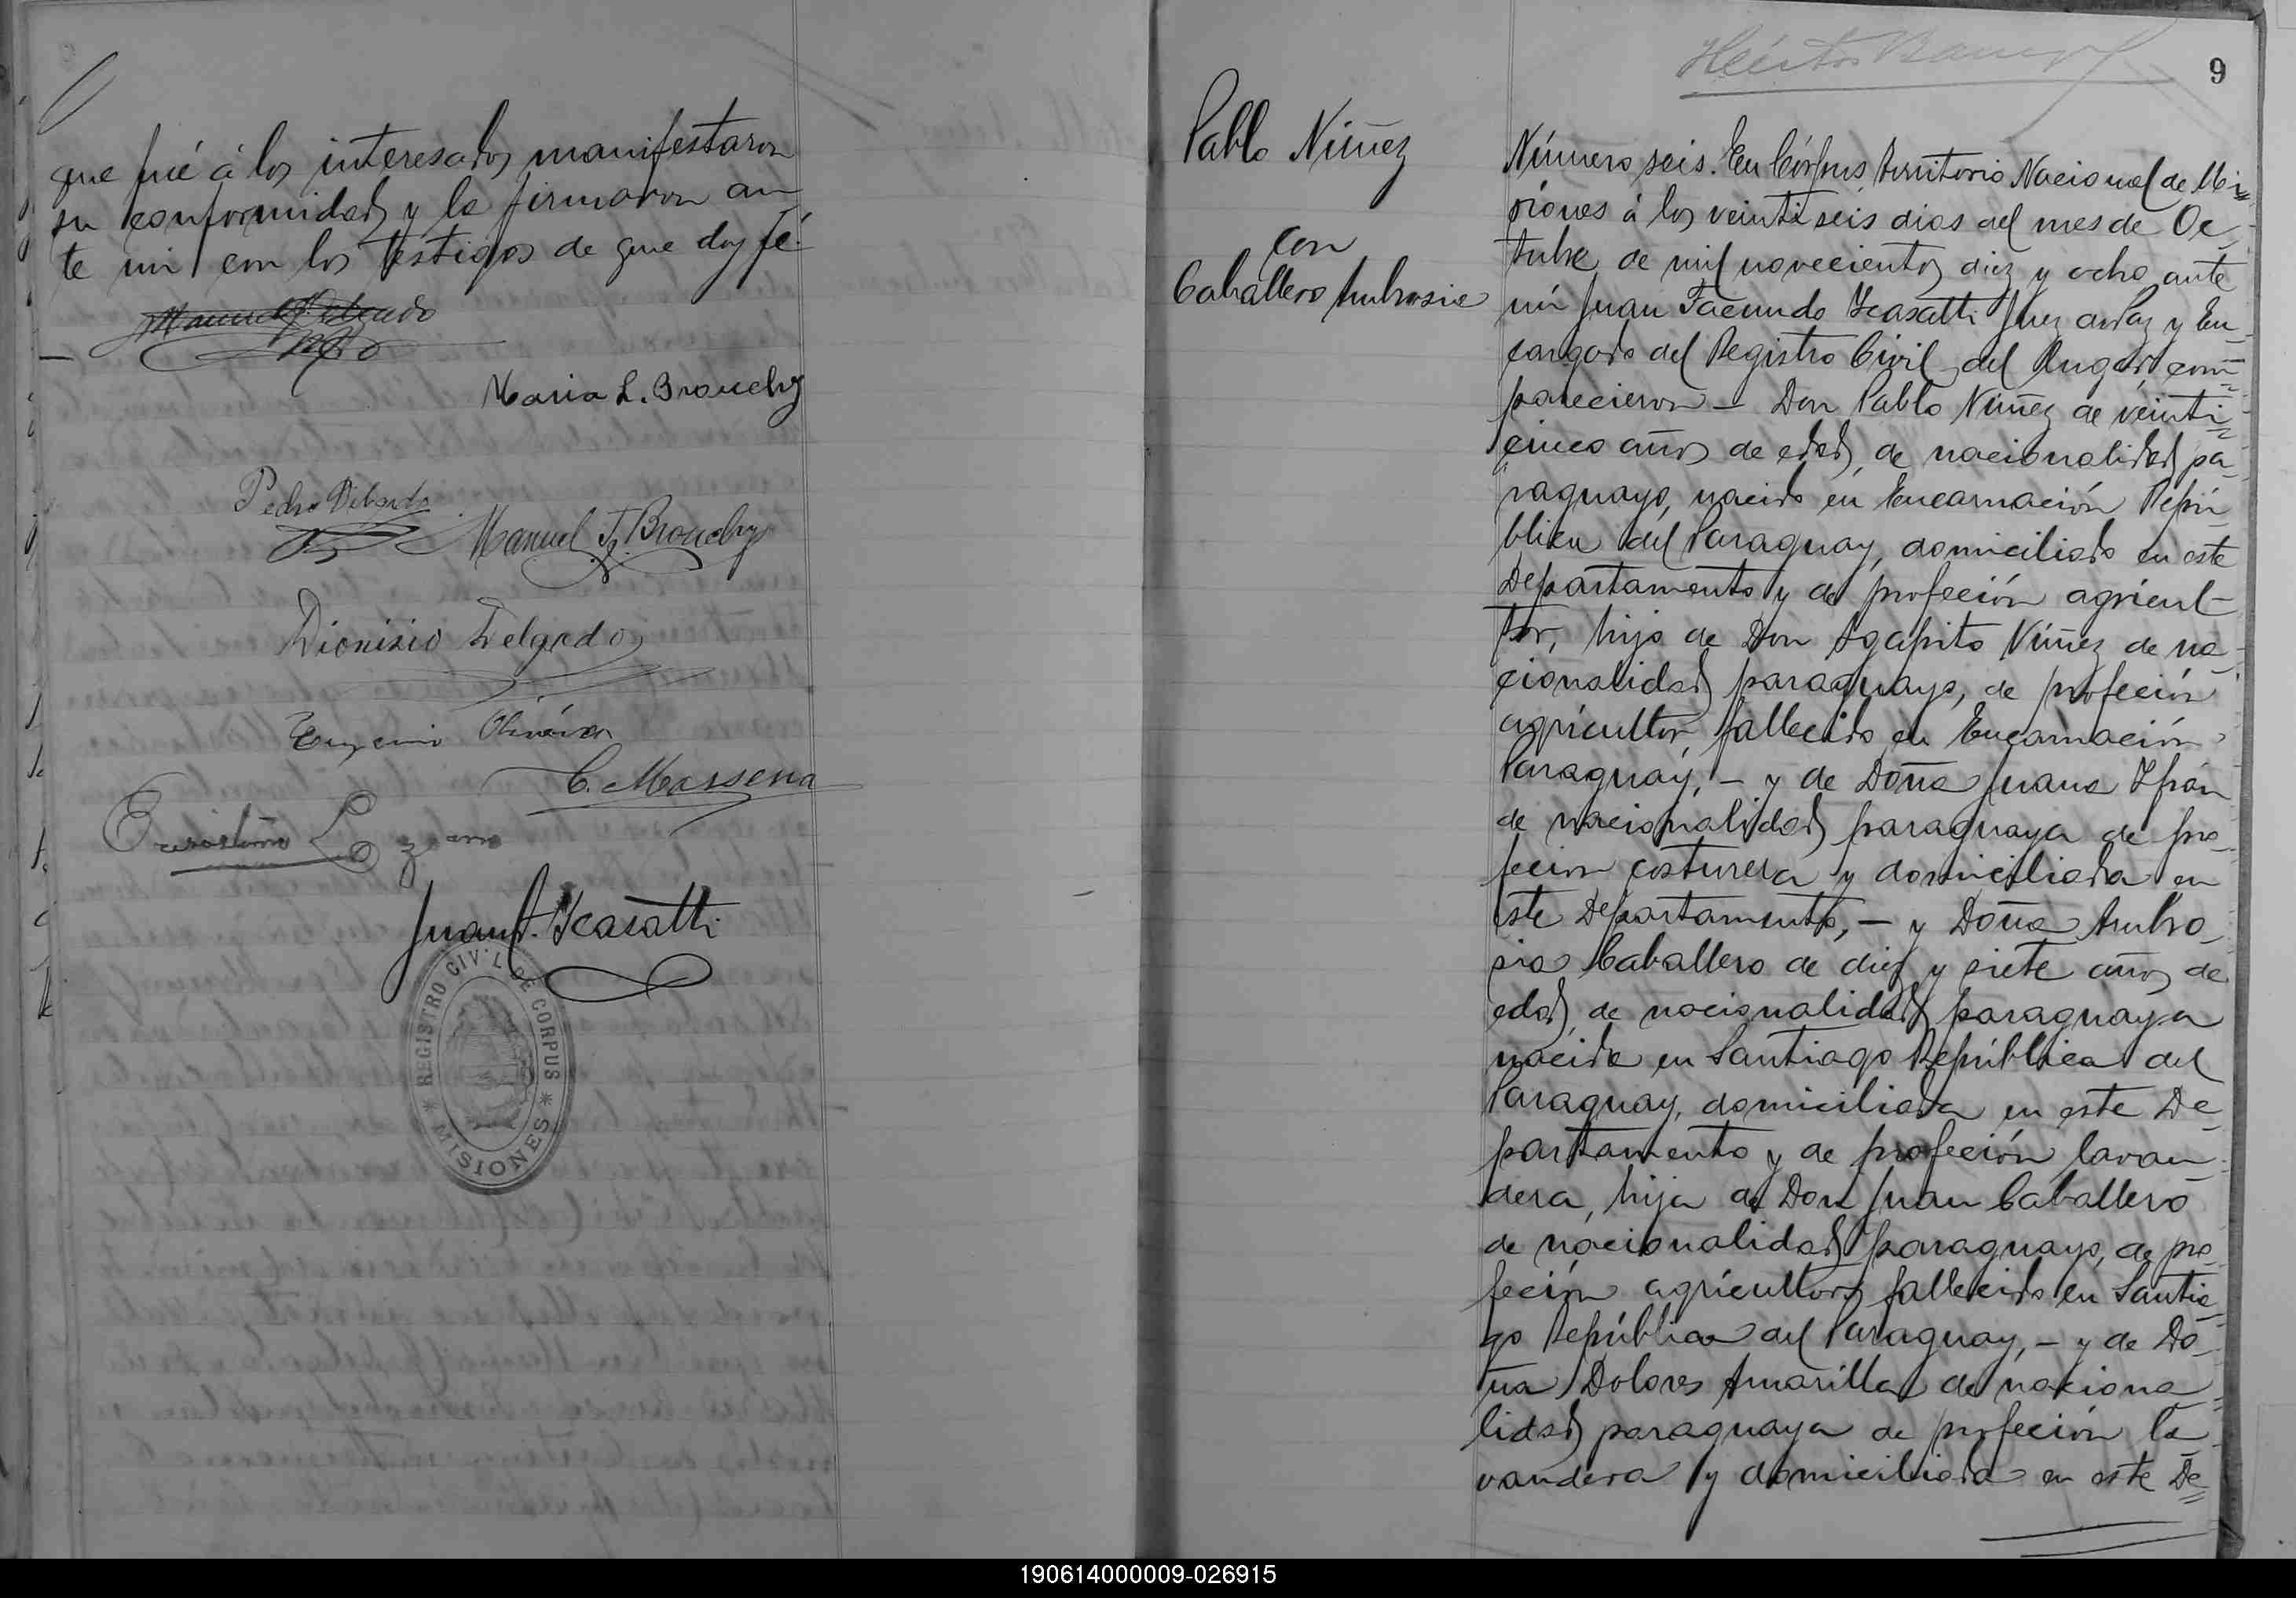 que fué á los interesados manifestaron
su conformidad y la firmaron an
te mi con los testigos de que doy fé.
Maria L. Brouchoy
Pedro Delgado
Manuel F. Brouchoy
Dionisio Delgado
Eugenio Olivéira
C. Massena
Lozano
Juan F. Icasatti
REGISTRO CIVIL DE CORPUS
* MISIONES *
9
Pablo Núñez
con
Caballero Ambrosia
Número seis. En Córpus, Territorio Nacional de Mi
siones á los veintiseis dias del mes de Oc
tubre de mil novecientos diez y ocho ante
mi Juan Facundo Icasatti Juez de Paz y En
cargado del Registro Civil del lugar, com
parecieron – Don Pablo Núñez de veinti
cinco años de edad, de nacionalidad pa
raguayo, nacido en Encarnación Repú
blica del Paraguay, domiciliado en este
Departamento y de profeción agricul
tor, hijo de Don Agapito Núñez de na
cionalidad paraguayo, de profeción
agricultor, fallecido en Encarnación
Paraguay, – y de Doña Juana Ifrán
de nacionalidad paraguaya de pro
fecion costurera y domiciliada en
este Departamento, – y Doña Ambro
sia Caballero de diez y siete años de
edad, de nacionalidad paraguaya
nacida en Santiago República del
Paraguay, domiciliada en este De
partamento y de profeción lavan
dera, hija de Don Juan Caballero
de nacionalidad paraguayo, de pro
feción agricultor, fallecido en Santia
go República del Paraguay, – y de Do
ña Dolores Amarilla de naciona
lidad paraguaya de profeción la
vandera y domiciliada en este De
190614000009-026915